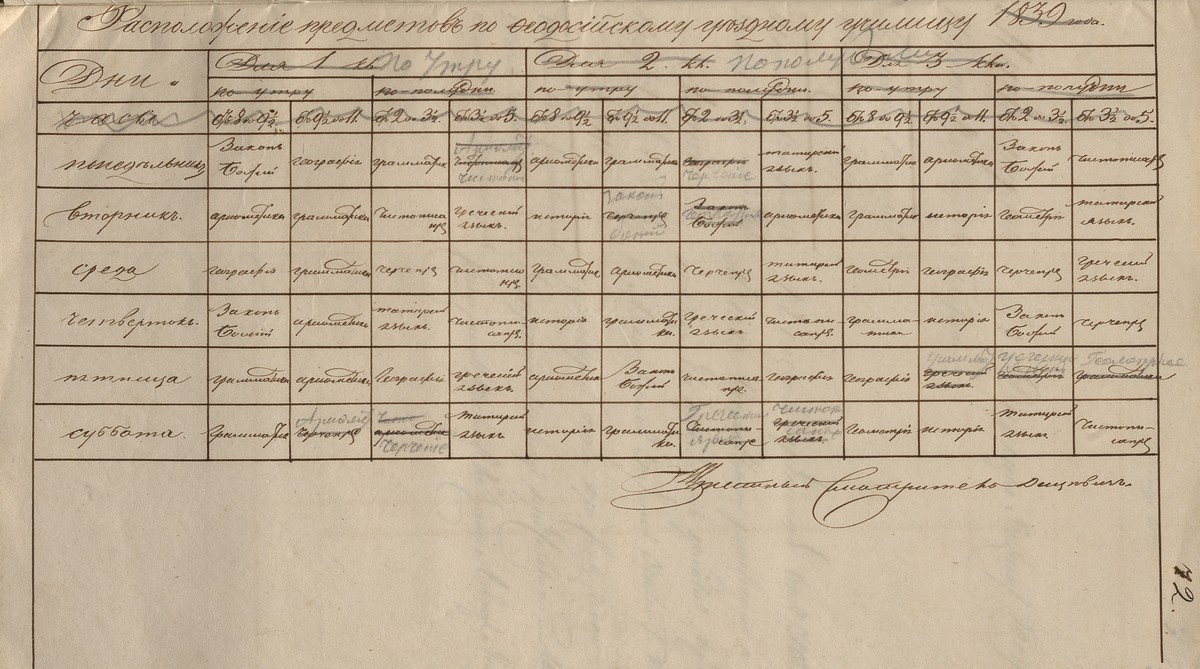 Расположеніе предметовъ по Ѳеодосійскому уѣздному училищу 1839 года.
Дни Для 1 кл. По Утру Для 2. кл. Пополудни Для 3 кла.
по-утру по-полудни. по-утру по-полудни. по-утру по-полудни
Часы Съ 8 до 9½ Съ 9½ до 11. Съ 2 до 3½ Съ 3½ до 5. Съ 8 до 9½ Съ 9½ до 11. Съ 2 до 3½ Съ 3½ до 5. Съ 8 до 9½ Съ 9½ до 11. Съ 2 до 3½. Съ 3½ до 5.
понедѣльникъ Законъ Божій географія грамматика чистописаніе ариѳметика грамматика географія Черченіе татарскій языкъ. грамматика ариѳметика Законъ Божій чистописаніе
вторникъ. ариѳметика грамматика Чистописаніе греческій языкъ. исторія Законъ Черченіе Божій Законъ Божій Географія ариѳметика грамматика исторія геометрія татарскій языкъ.
среда географія грамматика черченіе чистописаніе грамматика ариѳметика Черченіе татарскій языкъ. геометрія географія черченіе греческій языкъ.
четвертокъ. Законъ Божій ариѳметика татарскій языкъ. чистописаніе. исторія грамматика. греческій языкъ чистописаніе. грамматика исторія Законъ Божій черченіе
пятница грамматика ариѳметика Географія греческій языкъ. ариѳметика Законъ Божій чистописаніе. географія географія грамматика греческій языкъ. греческій языкъ геометрія Геометрія грамматика
суббота. грамматика Ариѳмет Черченіе Чисто ариѳметика Черченіе татарскій языкъ исторія грамматика. Греческій Чистописаніе языкъ Чистописаніе греческій языкъ. геометрія исторія татарскій языкъ. Чистописаніе
Штатный Смотритель
72.